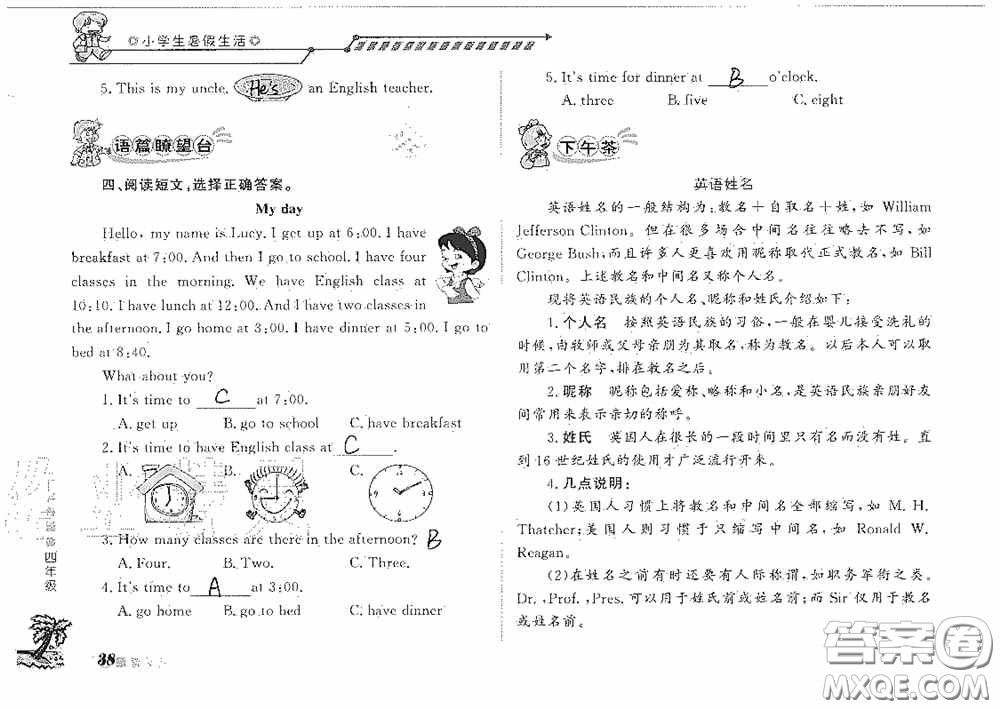 小学生暑假生活
5. This is my uncle. He's an English teacher.
语篇瞭望台
四、阅读短文,选择正确答案。
My day
Hello, my name is Lucy. I get up at 6:00. I have
breakfast at 7:00. And then I go to school. I have four
classes in the morning. We have English class at
10:10. I have lunch at 12:00. And I have two classes in
the afternoon. I go home at 3:00. I have dinner at 5:00. I go to
bed at 8:40.
What about you?
1. It's time to C at 7:00.
A. get up B. go to school C. have breakfast
2. It's time to have English class at C.
A. B. C.
3. How many classes are there in the afternoon? B
A. Four. B. Two. C. Three.
4. It's time to A at 3:00.
A. go home B. go to bed C. have dinner
四年级
38
5. It's time for dinner at B o'clock.
A. three B. five C. eight
下午茶
英语姓名
英语姓名的一般结构为:教名+自取名+姓,如 William
Jefferson Clinton。但在很多场合中间名往往略去不写,如
George Bush;而且许多人更喜欢用昵称取代正式教名,如 Bill
Clinton。上述教名和中间名又称个人名。
现将英语民族的个人名、昵称和姓氏介绍如下:
1. 个人名 按照英语民族的习俗,一般在婴儿接受洗礼的
时候,由牧师或父母亲朋为其取名,称为教名。以后本人可以取
用第二个名字,排在教名之后。
2. 昵称 昵称包括爱称、略称和小名,是英语民族亲朋好友
间常用来表示亲切的称呼。
3. 姓氏 英国人在很长的一段时间里只有名而没有姓。
直到16世纪姓氏的使用才广泛流行开来。
4. 几点说明:
(1)英国人习惯上将教名和中间名全部缩写,如 M. H.
Thatcher;美国人则习惯于只缩写中间名,如 Ronald W.
Reagan。
(2)在姓名之前有时还要有人际称谓,如职务军衔之类。
Dr.,Prof.,Pres. 可以用于姓氏前或姓名前;而 Sir 仅用于教名
或姓名前。
答案卷
MXQE.COM